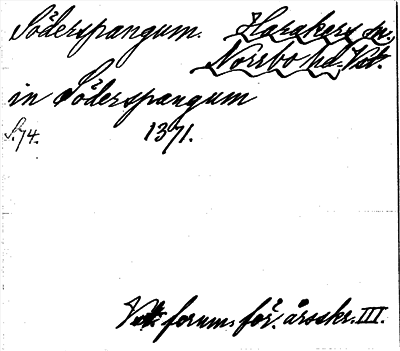 Söderspangum. Harakers sn.,
Norrbo hd. Vstm.
in Söderspangum
S. 74. 1371.
fornm. för. årsskr. III.